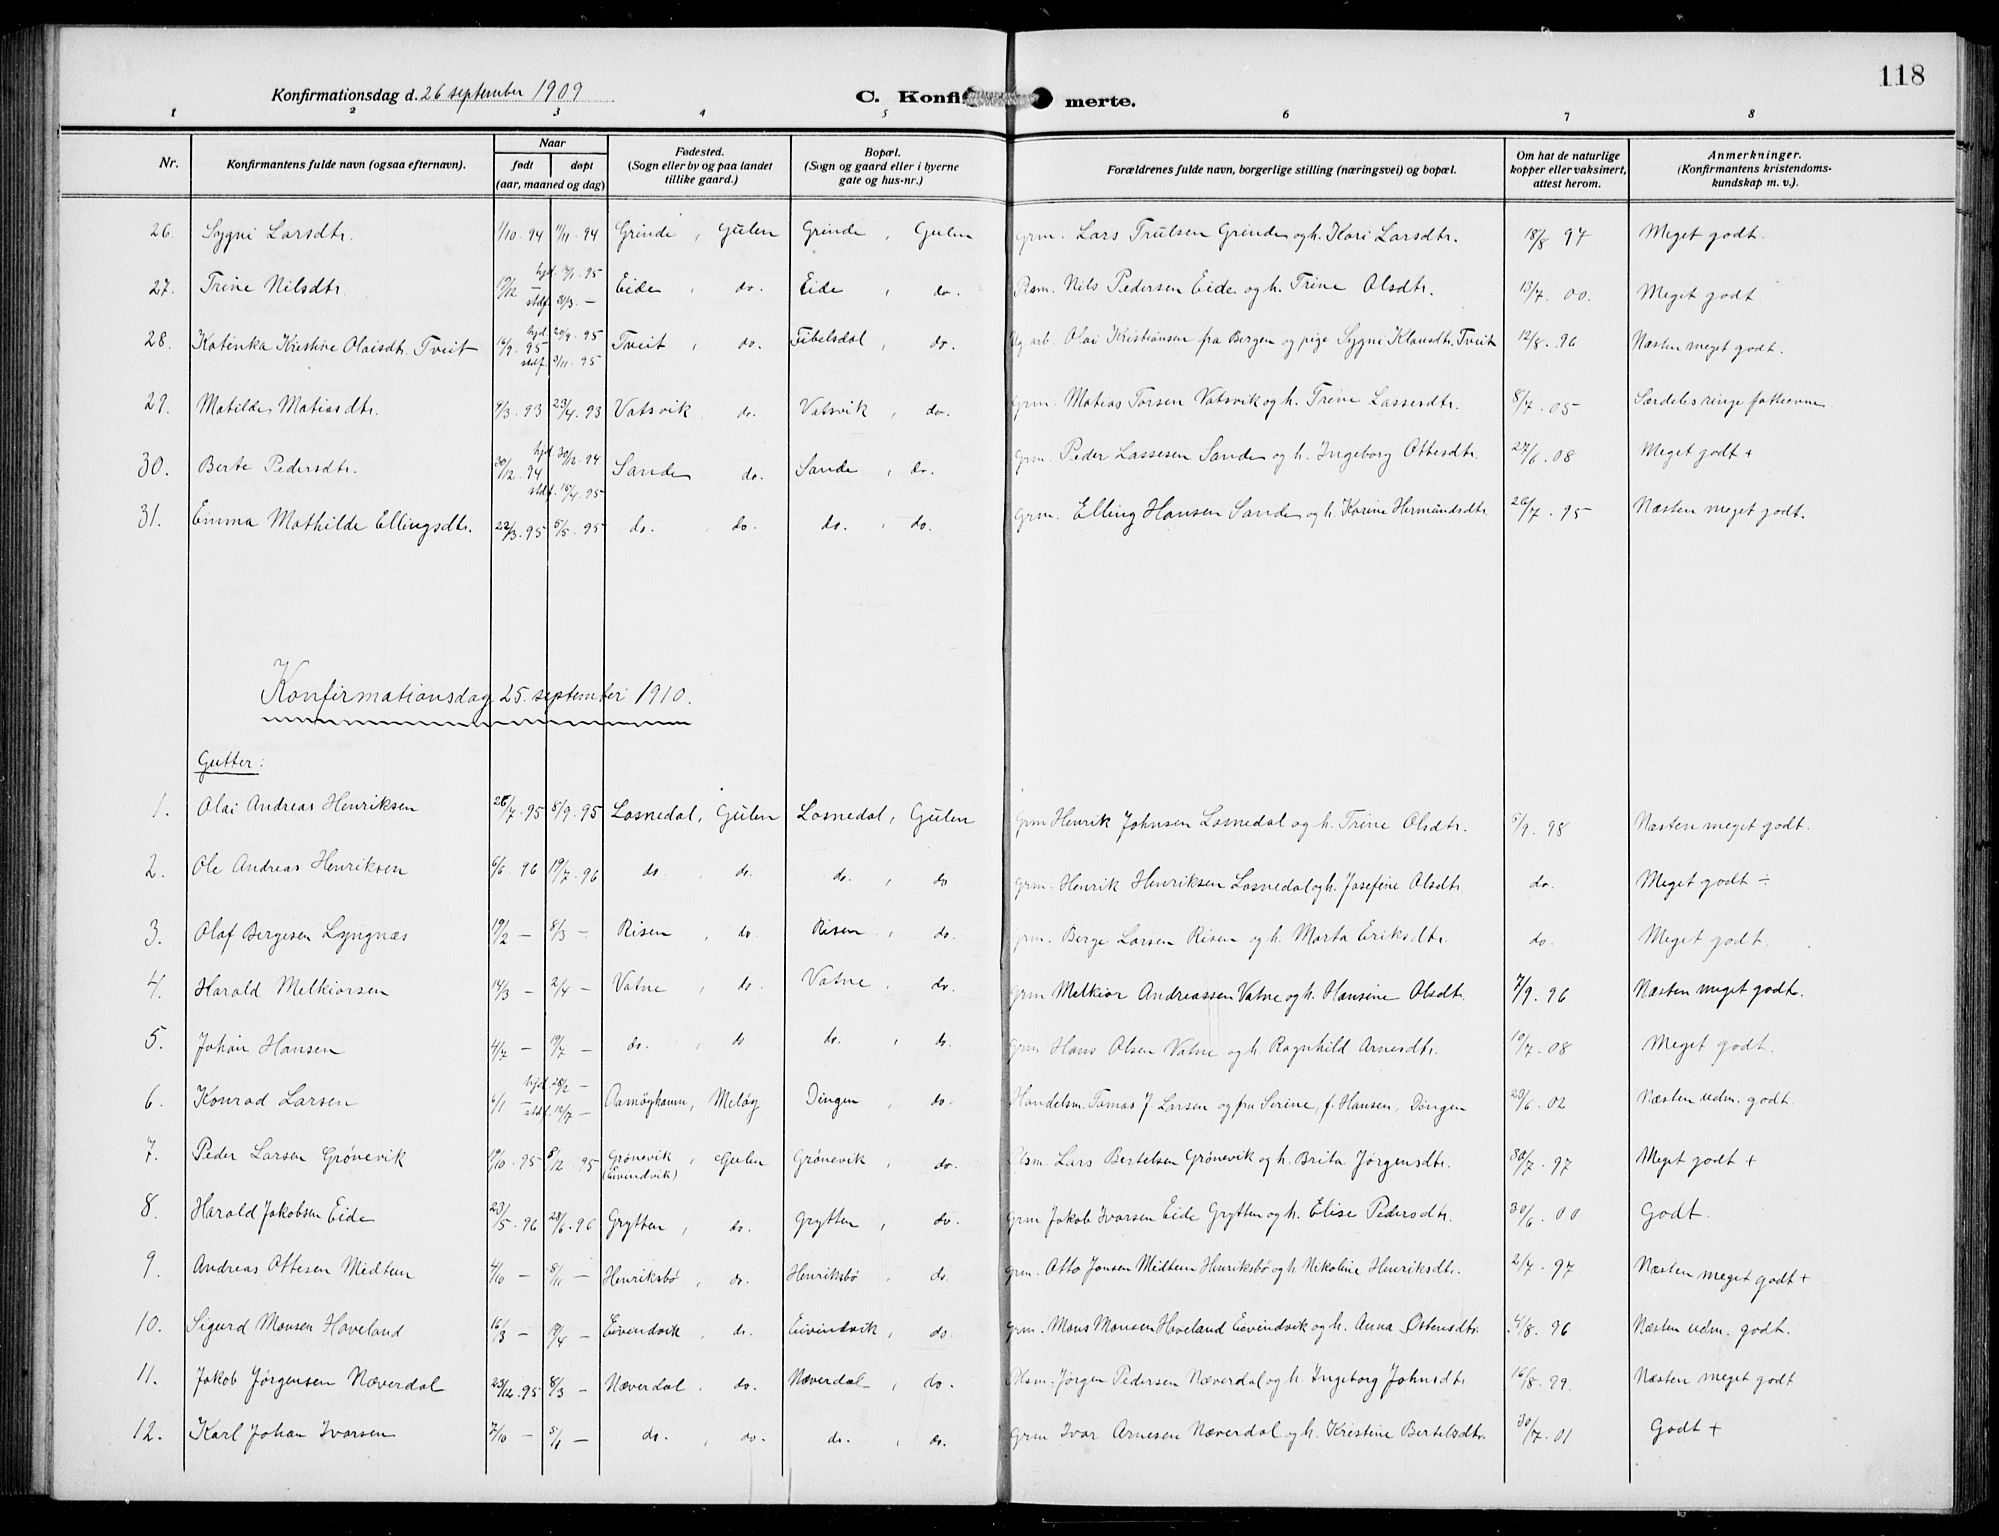 118
Konfirmationsdag d. 26 september 1909
C. Konfirmerte.
1 2 3 4 5 6 7 8
Nr. Konfirmantens fulde navn (ogsaa efternavn). Naar født døpt (aar, maaned og dag) Fødested. (Sogn eller by og paa landet tillike gaard.) Bopæl. (Sogn og gaard eller i byerne gate og hus-nr.) Forældrenes fulde navn, borgerlige stilling (næringsvei) og bopæl. Om hat de naturlige kopper eller vaksinert, attest herom. Anmerkninger. (Konfirmantens kristendomskundskap m. v.).
26. Sygni Larsdtr. 1/10. 94 11/11. 94 Grinde, Gulen Grinde, Gulen Grm. Lars Trulsen Grinde og h. Kari Larsdtr. 18/8 97 Meget godt.
27. Trine Nilsdtr. 19/12 – hjd. 7/1. 95 stdf. 31/3 – Eide, do. Eide, do. Nils Pedersen Eide og h. Trine Olsdtr. 13/7. 00. Meget godt
28. Katinka Kristine Olaisdtr. Tveit 16/9. 95 hjd. 20/9. 95 stdf. 3/11. 95 Tveit, do. Fibelsdal, do. Ug arb. Olai Kristiansen fra Bergen og pige Sygni Klausdtr. Tveit 12/8. 96 Næsten meget godt.
29. Matilde Matiasdtr. 9/3. 93 23/4. 93 Vatsvik, do. Vatsvik, do. Grm. Matias Torsen Vatsvik og h. Trine Lassesdtr. 8/7. 05 Særdeles ringe fatteevne
30. Berte Pedersdtr. 30/12. 94 hjd. 30/12. 94 stdf. 15/4. 95 Sande do. Sande, do. Grm. Peder Lassesen Sande og h. Ingeborg Ottesdtr. 27/6. 08 Meget godt +
31. Emma Mathilde Ellingsdtr. 22/3. 95 5/5. 95 do. do. do. do. Grm. Elling Hansen Sande og h. Karine Hermundsdtr 26/7. 95 Næsten meget godt.
Konfirmationsdag 25. september 1910.
Gutter:
1. Olai Andreas Henriksen 26/7. 95 8/9. 95 Losnedal, Gulen Losnedal, Gulen Grm Henrik Johnsen Losnedal og h. Trine Olsdtr. 5/9. 98 Næsten meget godt.
2. Ole Andreas Henriksen 6/6. 96 19/7. 96 do. do. do. do Grm. Henrik Henriksen Losnedal og h. Josefine Olsdtr do. Meget godt ÷
3. Olaf Bergesen Lyngnæs 19/2 – 8/3 – Risen, do. Risen, do. Grm. Berge Larsen Risen og h. Marta Eriksdtr. do. Meget godt.
4. Harald Melkiorsen 14/3 – 2/4 – Vatne, do. Vatne, do. Grm Melkior Andreassen Vatne og h. Hansine Olsdtr. 7/9. 96 Næsten meget godt.
5. Johan Hansen 4/7 – 19/7 – do. do do. do. Grm. Hans Olsen Vatne og h. Ragnhild Arnesdtr. 10/7. 08 Meget godt.
6. Konrad Larsen 6/1 – hjd. 28/2 – stdf. 12/7 – Aamøyhamn, Meløy Dingen, do. Handelsm. Tomas J. Larsen og fru Serine, f. Hansen, Dingen 23/6. 02 Næsten udm. godt.
7. Peder Larsen Grønevik 19/10. 95 8/12. 95 Grønevik (Eivindvik), Gulen Grønevik, do. Plsm. Lars Bertelsen Grønevik og h. Brita Jørgensdtr. 30/7. 97 Meget godt +
8. Harald Jakobsen Eide 23/5. 96 28/6. 96 Grytten, do. Grytten, do. Grm Jakob Ivarsen Eide Grytten og h. Elise Pedersdtr. 30/6. 00 Godt.
9. Andreas Ottesen Midtun 4/10 – 8/11 – Henriksbø, do. Henriksbø, do. Grm. Otto Jonsen Midtun Henriksbø og h. Nikoline Henriksdtr. 2/7. 97 Næsten meget godt +
10. Sigurd Monsen Haveland 16/3 – 19/4 – Eivindvik, do. Eivindvik, do. Grm. Mons Monsen Haveland Eivindvik og h. Anna Ottensdtr. 4/8. 96 Næsten udm. godt.
11. Jakob Jørgensen Næverdal 23/12. 95 8/3 – Næverdal, do. Næverdal, do. Plsm. Jørgen Pedersen Næverdal og h. Ingeborg Johnsdtr. 16/8. 99. Næsten meget godt
12. Karl Johan Ivarsen 7/10 – 5/1 – do. do. do. do. Grm Ivar Arnesen Næverdal og h. Kristine Bertelsdtr. 30/7. 01 Godt +